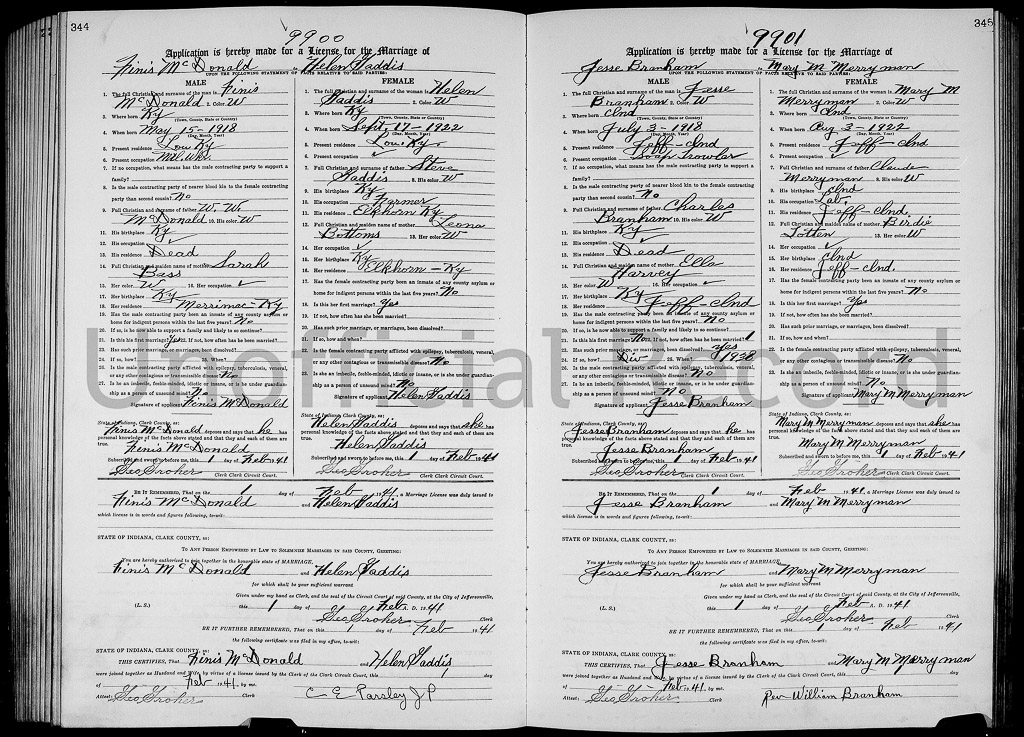 344
9900
Application is hereby made for a License for the Marriage of
Finis McDonald to Helen Gaddis
UPON THE FOLLOWING STATEMENT OF FACTS RELATIVE TO SAID PARTIES:
MALE
1. The full Christian and surname of the man is Finis
McDonald 2. Color W
3. Where born Ky
(Town, County, State or Country)
4. When born May 15-1918
(Day, Month, Year)
5. Present residence Lou Ky
6. Present occupation
7. If no occupation, what means has the male contracting party to support a
family?
8. Is the male contracting party of nearer blood kin to the female contracting
party than second cousin? No
9. Full Christian and surname of father W. W.
McDonald 10. His color W
11. His birthplace Ky
12. His occupation ✓
13. His residence Dead
14. Full Christian and maiden name of mother Sarah
Bass
15. Her color W 16. Her occupation ✓
17. Her birthplace Ky
18. Her residence Merrimac-Ky
19. Has the male contracting party been an inmate of any county asylum or
home for indigent persons within the last five years? No
20. If so, is he able to support a family and likely to so continue?
21. Is this his first marriage? Yes If not, how often has he been married?
22. Has such prior marriage, or marriages, been dissolved?
23. If so, how? 25. When?
26. Is the male contracting party afflicted with epilepsy, tuberculosis, venereal,
or any other contagious or transmissible disease? No
27. Is he an imbecile, feeble-minded, idiotic or insane, or is he under guardian-
ship as a person of unsound mind? No
Signature of applicant Finis McDonald
State of Indiana, Clark County, ss:
Finis McDonald deposes and says that he has
personal knowledge of the facts above stated and that they and each of them are
true.
Finis McDonald
Subscribed and sworn to before me, this 1 day of Feb 1941
Geo Groher Clerk Clark Circuit Court.
FEMALE
1. The full Christian and surname of the woman is Helen
Gaddis 2. Color W
3. Where born Ky
(Town, County, State or Country)
4. When born Sept. 17-1922
(Day, Month, Year)
5. Present residence Lou. Ky
6. Present occupation ✓
7. Full Christian and surname of father Steve
Gaddis 8. His color W
9. His birthplace Ky
10. His occupation Farmer
11. His residence Elkhorn Ky
12. Full Christian and maiden name of mother Leona
Bottoms 13. Her color W
14. Her occupation ✓
15. Her birthplace Ky
16. Her residence Elkhorn-Ky
17. Has the female contracting party been an inmate of any county asylum or
home for indigent persons within the last five years? No
18. Is this her first marriage? Yes
19. If not, how often has she been married?
20. Has such prior marriage, or marriages, been dissolved?
21. If so, how and when?
22. Is the female contracting party afflicted with epilepsy, tuberculosis, venereal,
or any other contagious or transmissible disease? No
23. Is she an imbecile, feeble-minded, idiotic, or insane, or is she under guardian-
ship as a person of unsound mind? No
Signature of applicant Helen Gaddis
State of Indiana, Clark County, ss:
Helen Gaddis deposes and says that she has
personal knowledge of the facts above stated and that they and each of them are
true.
Helen Gaddis
Subscribed and sworn to before me, this 1 day of Feb 1941
Geo Groher Clerk Clark Circuit Court.
BE IT REMEMBERED, That on the 1 day of Feb 1941, a Marriage License was duly issued to
Finis McDonald and Helen Gaddis
which license is in words and figures following, to-wit:
STATE OF INDIANA, CLARK COUNTY, ss:
TO ANY PERSON EMPOWERED BY LAW TO SOLEMNIZE MARRIAGES IN SAID COUNTY, GREETING:
You are hereby authorized to join together in the honorable state of MARRIAGE,
Finis McDonald and Helen Gaddis
for which shall be your sufficient warrant
Given under my hand as Clerk, and the seal of the Circuit Court of said County, at the City of Jeffersonville,
(L. S.) this 1 day of Feb A. D. 1941
Geo Groher Clerk
BE IT FURTHER REMEMBERED, That on this 1 day of Feb 1941
the following certificate was filed in my office, to-wit:
STATE OF INDIANA, CLARK COUNTY, ss:
THIS CERTIFIES, That Finis McDonald and Helen Gaddis
were joined together as Husband and Wife by virtue of a license issued by the Clerk of the Circuit Court of said County, this 1 day
of Feb 1941, by me.
Attest: Geo Groher Clerk C E Parsley J P
345
9901
Application is hereby made for a License for the Marriage of
Jesse Branham to Mary M Merryman
UPON THE FOLLOWING STATEMENT OF FACTS RELATIVE TO SAID PARTIES:
MALE
1. The full Christian and surname of the man is Jesse
Branham 2. Color W
3. Where born Ind
(Town, County, State or Country)
4. When born July 3-1918
(Day, Month, Year)
5. Present residence Jeff-Ind
6. Present occupation Soap
7. If no occupation, what means has the male contracting party to support a
family?
8. Is the male contracting party of nearer blood kin to the female contracting
party than second cousin? No
9. Full Christian and surname of father Charles
Branham 10. His color W
11. His birthplace Ky
12. His occupation ✓
13. His residence Dead
14. Full Christian and maiden name of mother Ella
Harvey
15. Her color W 16. Her occupation ✓
17. Her birthplace Ky
18. Her residence Jeff-Ind
19. Has the male contracting party been an inmate of any county asylum or
home for indigent persons within the last five years? No
20. If so, is he able to support a family and likely to so continue?
21. Is this his first marriage? No If not, how often has he been married? 1
22. Has such prior marriage, or marriages, been dissolved? Yes
23. If so, how? Div 25. When? 1938
26. Is the male contracting party afflicted with epilepsy, tuberculosis, venereal,
or any other contagious or transmissible disease? No
27. Is he an imbecile, feeble-minded, idiotic or insane, or is he under guardian-
ship as a person of unsound mind? No
Signature of applicant Jesse Branham
State of Indiana, Clark County, ss:
Jesse Branham deposes and says that he has
personal knowledge of the facts above stated and that they and each of them are
true.
Jesse Branham
Subscribed and sworn to before me, this 1 day of Feb 1941
Geo Groher Clerk Clark Circuit Court.
FEMALE
1. The full Christian and surname of the woman is Mary M
Merryman 2. Color W
3. Where born Ind
(Town, County, State or Country)
4. When born Aug-3-1922
(Day, Month, Year)
5. Present residence Jeff-Ind
6. Present occupation ✓
7. Full Christian and surname of father Claude
Merryman 8. His color W
9. His birthplace Ind
10. His occupation Lab.
11. His residence Jeff-Ind.
12. Full Christian and maiden name of mother Birdie
Totten 13. Her color W
14. Her occupation ✓
15. Her birthplace Ind
16. Her residence Jeff-Ind.
17. Has the female contracting party been an inmate of any county asylum or
home for indigent persons within the last five years? No
18. Is this her first marriage? Yes
19. If not, how often has she been married?
20. Has such prior marriage, or marriages, been dissolved?
21. If so, how and when?
22. Is the female contracting party afflicted with epilepsy, tuberculosis, venereal,
or any other contagious or transmissible disease? No
23. Is she an imbecile, feeble-minded, idiotic, or insane, or is she under guardian-
ship as a person of unsound mind? No
Signature of applicant Mary M Merryman
State of Indiana, Clark County, ss:
Mary M Merryman deposes and says that she has
personal knowledge of the facts above stated and that they and each of them are
true.
Mary M Merryman
Subscribed and sworn to before me, this 1 day of Feb 1941
Geo Groher Clerk Clark Circuit Court.
BE IT REMEMBERED, That on the 1 day of Feb 1941, a Marriage License was duly issued to
Jesse Branham and Mary M Merryman
which license is in words and figures following, to-wit:
STATE OF INDIANA, CLARK COUNTY, ss:
TO ANY PERSON EMPOWERED BY LAW TO SOLEMNIZE MARRIAGES IN SAID COUNTY, GREETING:
You are hereby authorized to join together in the honorable state of MARRIAGE,
Jesse Branham and Mary M Merryman
for which shall be your sufficient warrant
Given under my hand as Clerk, and the seal of the Circuit Court of said County, at the City of Jeffersonville,
(L. S.) this 1 day of Feb A. D. 1941
Geo Groher Clerk
BE IT FURTHER REMEMBERED, That on this 1 day of Feb 1941
the following certificate was filed in my office, to-wit:
STATE OF INDIANA, CLARK COUNTY, ss:
THIS CERTIFIES, That Jesse Branham and Mary M Merryman
were joined together as Husband and Wife by virtue of a license issued by the Clerk of the Circuit Court of said County, this 1 day
of Feb 1941, by me.
Attest: Geo Groher Clerk Rev William Branham
Unofficial Record